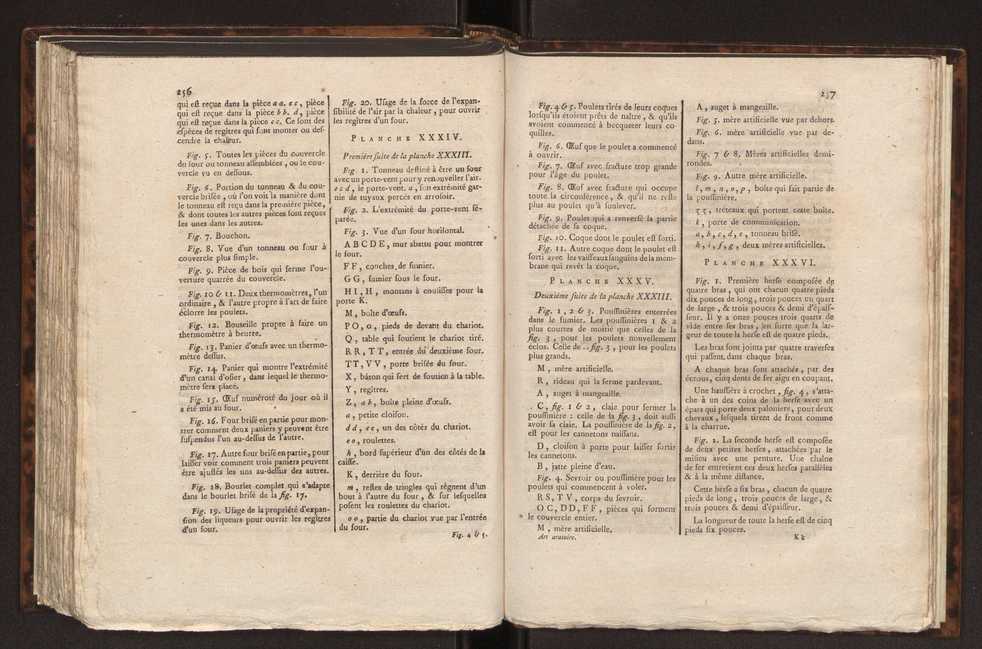 256
qui est reçue dans la pièce a a. c c, pièce
qui est reçue dans la pièce b b. d, pièce
qui est reçue dans la pièce c c. Ce sont des
espèces de regîtres qui font monter ou des-
cendre la chaleur.
Fig. 5. Toutes les pièces du couvercle
du four ou tonneau assemblées, ou le cou-
vercle vu en dessous.
Fig. 6. Portion du tonneau & du cou-
vercle brisée, où l'on voit la manière dont
le tonneau est reçu dans la première pièce,
& dont toutes les autres pièces sont reçues
les unes dans les autres.
Fig. 7. Bouchon.
Fig. 8. Vue d'un tonneau ou four à
couvercle plus simple.
Fig. 9. Pièce de bois qui ferme l'ou-
verture quarrée du couvercle.
Fig. 10 & 11. Deux thermomètres, l'un
ordinaire, & l'autre propre à l'art de faire
éclorre les poulets.
Fig. 12. Bouteille propre à faire un
thermomètre à beurre.
Fig. 13. Panier d'œufs avec un thermo-
mètre dessus.
Fig. 14. Panier qui montre l'extrémité
d'un canal d'osier, dans lequel le thermo-
mètre sera placé.
Fig. 15. Œuf numéroté du jour où il
a été mis au four.
Fig. 16. Four brisé en partie pour mon-
trer comment deux paniers y peuvent être
suspendus l'un au-dessus de l'autre.
Fig. 17. Autre four brisé en partie, pour
laisser voir comment trois paniers peuvent
être ajustés les uns au-dessus des autres.
Fig. 18. Bourlet complet qui s'adapte
dans le bourlet brisé de la fig. 17.
Fig. 19. Usage de la propriété d'expan-
sion des liqueurs pour ouvrir les regîtres
d'un four.
Fig. 20. Usage de la force de l'expan-
sibilité de l'air par la chaleur, pour ouvrir
les regîtres d'un four.
PLANCHE XXXIV.
Première suite de la planche XXXIII.
Fig. 1. Tonneau destiné à être un four
avec un porte-vent pour y renouveller l'air.
e c d, le porte-vent. a, son extrémité gar-
nie de tuyaux percés en arrosoir.
Fig. 2. L'extrémité du porte-vent sé-
parée.
Fig. 3. Vue d'un four horisontal.
A B C D E, mur abattu pour montrer
le four.
F F, couches de fumier.
G G, fumier sous le four.
H I, H, montans à coulisses pour la
porte K.
M, boîte d'œufs.
P O, o, pieds de devant du chariot.
Q, table qui soutient le chariot tiré.
R R, T T, entrée du deuxième four.
T T, V V, porte brisée du four.
X, bâton qui sert de soutien à la table.
Y, regîtres.
Z, a b, boîte pleine d'œufs.
a, petite cloison.
d d, e e, un des côtés du chariot.
e e, roulettes.
h, bord supérieur d'un des côtés de la
caisse.
K, derrière du four.
m, restes de tringles qui règnent d'un
bout à l'autre du four, & sur lesquelles
posent les roulettes du chariot.
o o, partie du chariot vue par l'entrée
du four.
Fig. 4 & 5.
257
Fig. 4 & 5. Poulets tirés de leurs coques
lorsqu'ils étoient prêts de naître, & qu'ils
avoient commencé à becqueter leurs co-
quilles.
Fig. 6. Œuf que le poulet a commencé
à ouvrir.
Fig. 7. Œuf avec fracture trop grande
pour l'âge du poulet.
Fig. 8. Œuf avec fracture qui occupe
toute la circonférence, & qu'il ne reste
plus au poulet qu'à soulever.
Fig. 9. Poulet qui a renversé la partie
détachée de sa coque.
Fig. 10. Coque dont le poulet est sorti.
Fig. 11. Autre coque dont le poulet est
sorti avec les vaisseaux sanguins de la mem-
brane qui revêt la coque.
PLANCHE XXXV.
Deuxième suite de la planche XXXIII.
Fig. 1, 2 & 3. Poussinières enterrées
dans le fumier. Les poussinières 1 & 2
plus courtes de moitié que celles de la
fig. 3, pour les poulets nouvellement
éclos. Celle de .. fig. 3, pour les poulets
plus grands.
M, mère artificielle.
R, rideau qui la ferme pardevant.
A, auget à mangeaille.
C, fig. 1 & 2, claie pour fermer la
poussinière : celle de la fig. 3, doit aussi
avoir sa claie. La poussinière de la fig. 2,
est pour les cannetons naissans.
D, cloison à porte pour laisser sortir
les cannetons.
B, jatte pleine d'eau.
Fig. 4. Sevroir ou poussinière pour les
poulets qui commencent à voler.
R S, T V, corps du sevroir.
O C, D D, F F, pièces qui forment
le couvercle entier.
M, mère artificielle.
Art aratoire.
A, auget à mangeaille.
Fig. 5. mère artificielle vue par dehors.
Fig. 6. mère artificielle vue par de-
dans.
Fig. 7 & 8. Mères artificielles demi-
rondes.
Fig. 9. Autre mère artificielle.
l, m, n, o, p, boîte qui fait partie de
la poussinière.
ζ ζ, tréteaux qui portent cette boîte.
k, porte de communication.
a, b, c, d, e, tonneau brisé.
h, i, f, g, deux mères artificielles.
PLANCHE XXXVI.
Fig. 1. Première herse composée de
quatre bras, qui ont chacun quatre pieds
dix pouces de long, trois pouces un quart
de large, & trois pouces & demi d'épais-
seur. Il y a onze pouces trois quarts de
vide entre ses bras, en sorte que la lar-
geur de toute la herse est de quatre pieds.
Les bras sont joints par quatre traverses
qui passent dans chaque bras.
A chaque bras sont attachés, par des
écrous, cinq dents de fer aigu en coupant.
Une haussière à crochet, fig. 4, s'atta-
che à un des coins de la herse avec un
épars qui porte deux paloniers, pour deux
chevaux, lesquels tirent de front comme
à la charrue.
Fig. 2. La seconde herse est composée
de deux petites herses, attachées par le
milieu avec une penture. Une chaîne
de fer entretient ces deux herses parallèles
& à la même distance.
Cette herse a six bras, chacun de quatre
pieds de long, trois pouces de large, &
trois pouces & demi d'épaisseur.
La longueur de toute la herse est de cinq
pieds six pouces.
K k